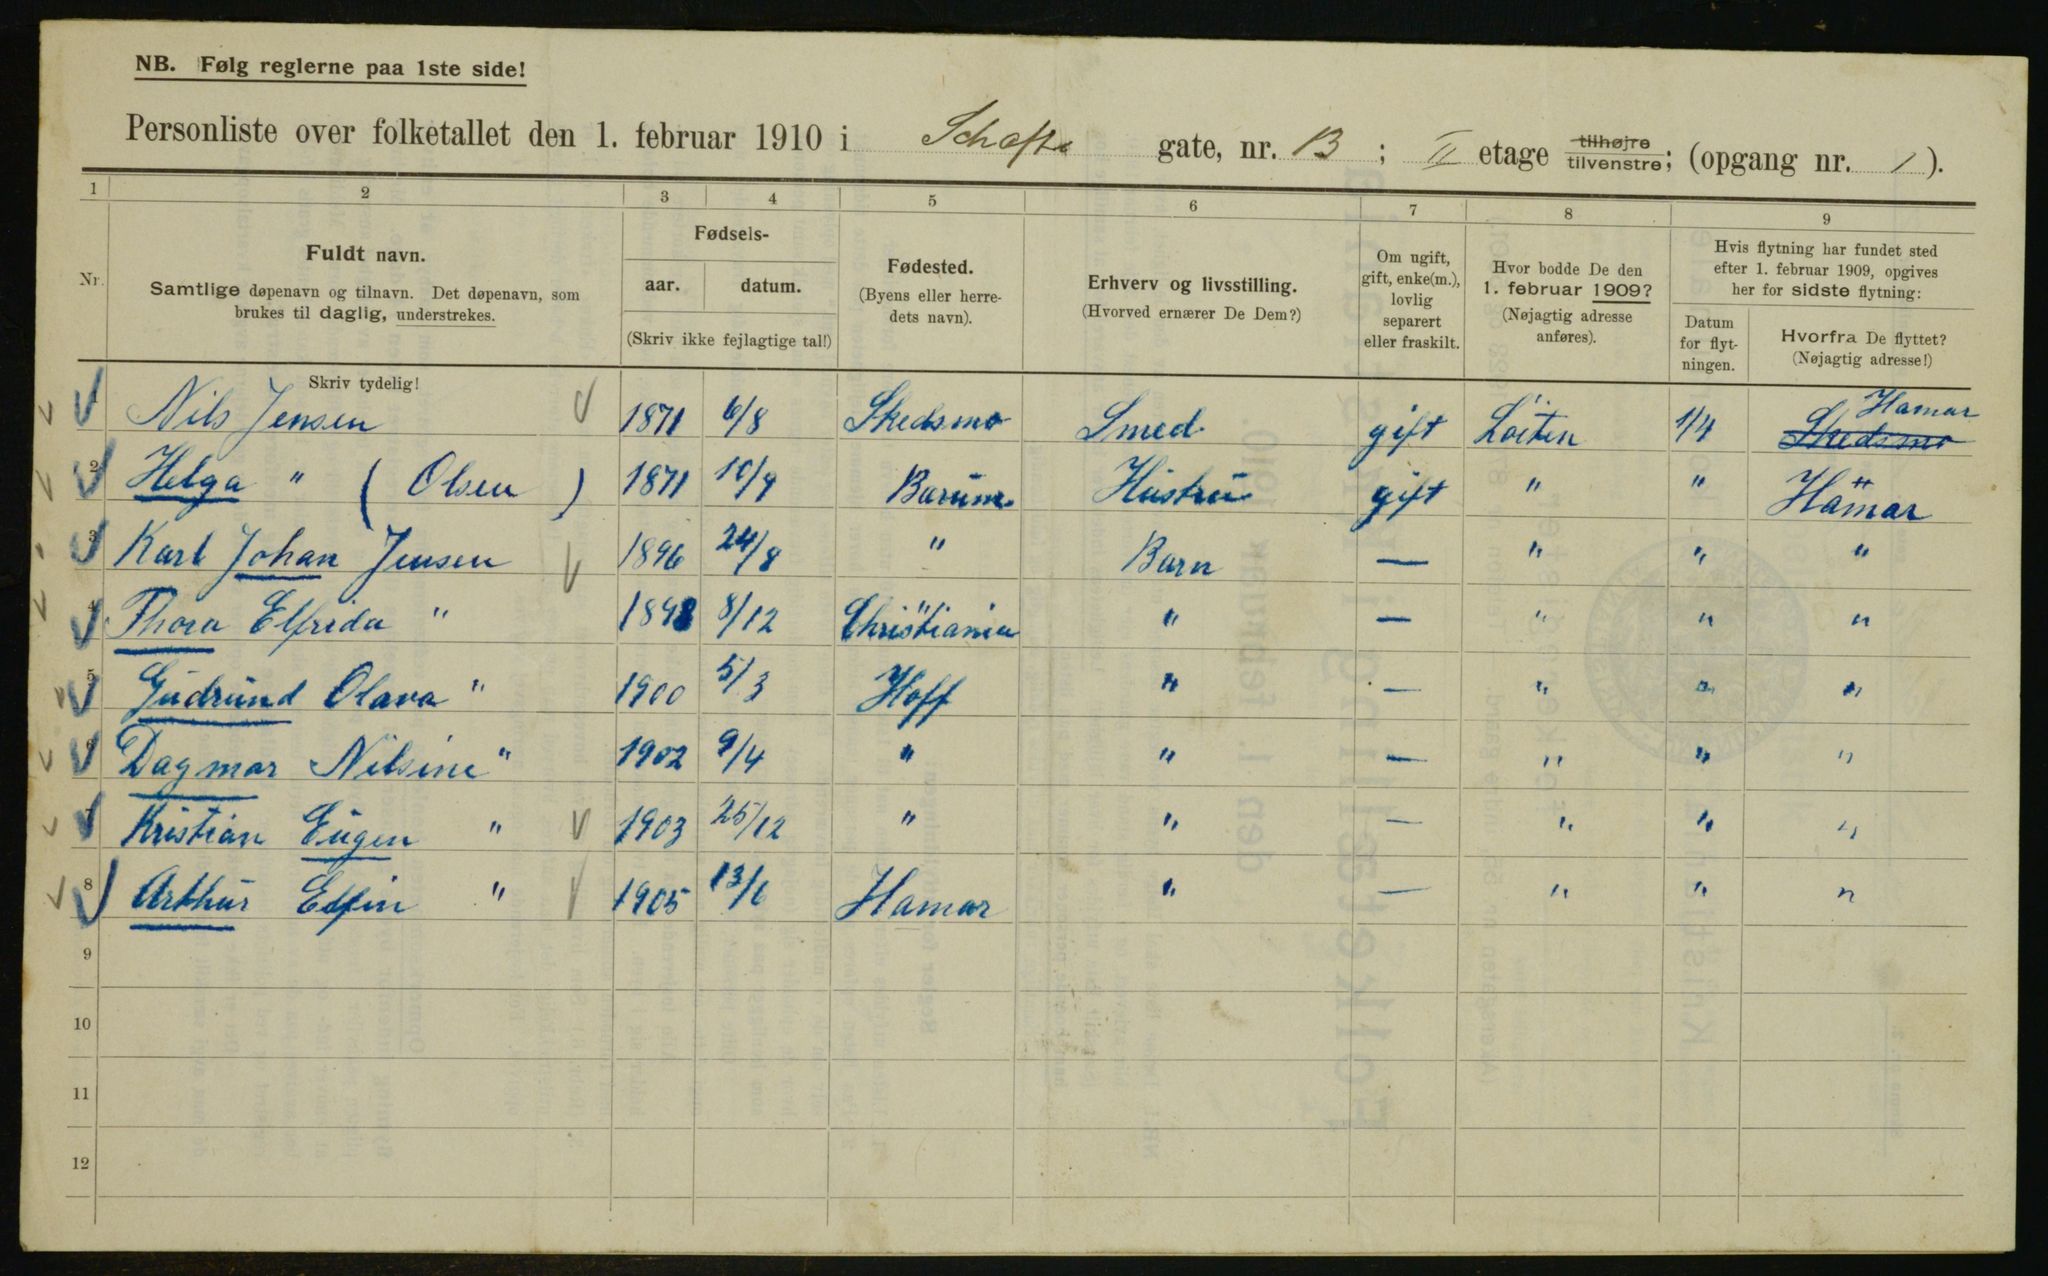 NB. Følg reglerne paa 1ste side!
Personliste over folketallet den 1. februar 1910 i Schäfts gate, nr. 13 ; II etage tilhøjre tilvenstre; (opgang nr. 1 ).
1 2 3 4 5 6 7 8 9
Nr. Fuldt navn. Samtlige døpenavn og tilnavn. Det døpenavn, som brukes til daglig, understrekes. Skriv tydelig!
Fødsels- aar. datum. (Skriv ikke fejlagtige tal!)
Fødested. (Byens eller herredets navn).
Erhverv og livsstilling. (Hvorved ernærer De Dem?)
Om ugift, gift, enke(m.), lovlig separert eller fraskilt.
Hvor bodde De den 1. februar 1909? (Nøjagtig adresse anføres).
Hvis flytning har fundet sted efter 1. februar 1909, opgives her for sidste flytning:
Datum for flytningen.
Hvorfra De flyttet? (Nøjagtig adresse!)
1 Nils Jensen 1871 6/8 Skedsmo Smed gift Löiten 1/4 Skedsmo Hamar
2 Helga " (Olsen) 1871 10/9 Barum Hustru gift " " Hamar
3 Karl Johan Jensen 1896 24/8 " Barn — " " "
4 Thora Elfrida " 1898 8/12 Christiania " — " " "
5 Gudrund Olava " 1900 5/3 Hoff " — " " "
6 Dagmar Nilsine " 1902 9/4 " " — " " "
7 Kristian Eugen " 1903 25/12 " " — " " "
8 Arthur Elfin " 1905 13/6 Hamar " — " " "
9
10
11
12